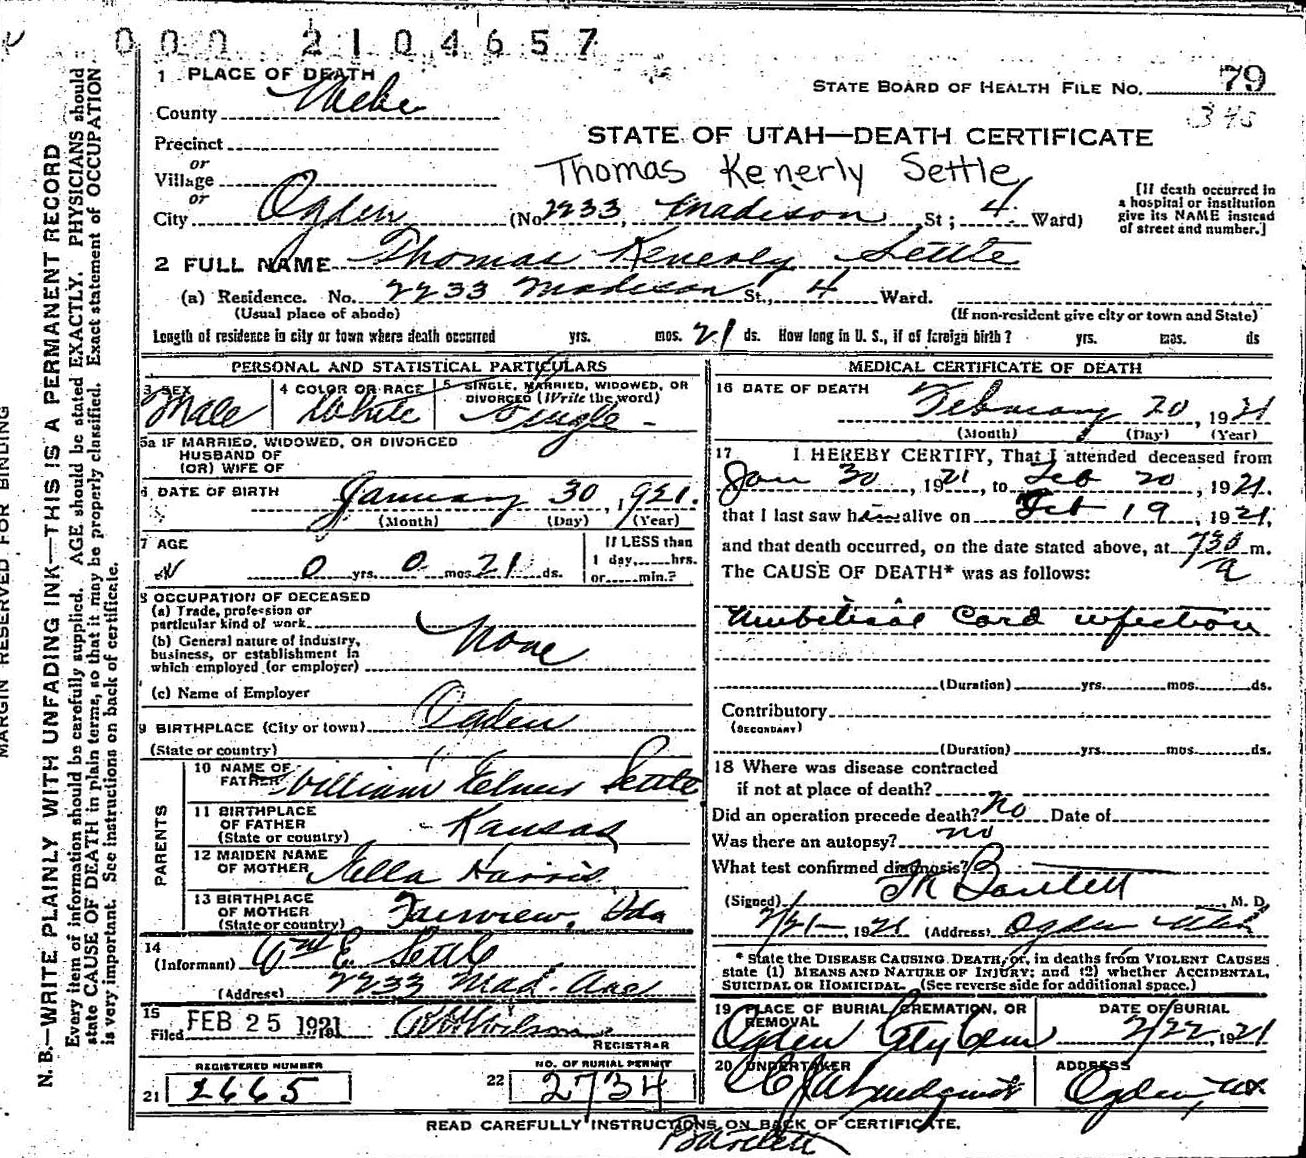 000 2104657
1 PLACE OF DEATH
STATE BOARD OF HEALTH FILE NO. 79
County
345
STATE OF UTAH—DEATH CERTIFICATE
Precinct
or
Thomas Kenerly Settle
Village
or
City Ogden (No. 2233, Madison St; 4 Ward)
[If death occurred in
a hospital or institution
give its NAME instead
of street and number.]
2 FULL NAME Thomas Kenerly Settle
(a) Residence. No. 2233 Madison St., 4 Ward.
(Usual place of abode)
(If non-resident give city or town and State)
Length of residence in city or town where death occurred yrs. mos. 21 ds. How long in U. S., if of foreign birth? yrs. mos. ds
PERSONAL AND STATISTICAL PARTICULARS
3 SEX
Male
4 COLOR OR RACE
White
5 SINGLE, MARRIED, WIDOWED, OR
DIVORCED (Write the word)
Single -
5a IF MARRIED, WIDOWED, OR DIVORCED
HUSBAND OF
(OR) WIFE OF
6 DATE OF BIRTH January 30, 1921.
(Month) (Day) (Year)
7 AGE
0 yrs. 0 mos. 21 ds.
If LESS than
1 day, hrs.
or min.?
8 OCCUPATION OF DECEASED
(a) Trade, profession or
particular kind of work
(b) General nature of industry,
business, or establishment in
which employed (or employer)
None
(c) Name of Employer
9 BIRTHPLACE (City or town) Ogden
(State or country)
PARENTS
10 NAME OF
FATHER William Elmer Settle
11 BIRTHPLACE
OF FATHER
(State or country) Kansas
12 MAIDEN NAME
OF MOTHER Ella Harris
13 BIRTHPLACE
OF MOTHER
(State or country) Fairview, Ida
14
(Informant) Wm E. Settle
(Address) 2233 Mad. Ave
15
Filed FEB 25 1921 Wilson
REGISTRAR
REGISTERED NUMBER
21 2665
NO. OF BURIAL PERMIT
22 2734
MEDICAL CERTIFICATE OF DEATH
16 DATE OF DEATH
February 20, 1921
(Month) (Day) (Year)
17 I HEREBY CERTIFY, That I attended deceased from
Jan 30, 1921, to Feb 20, 1921.
that I last saw him alive on Feb 19, 1921,
and that death occurred, on the date stated above, at 730 a m.
The CAUSE OF DEATH* was as follows:
Umbilical Cord infection
(Duration) yrs. mos. ds.
Contributory
(SECONDARY)
(Duration) yrs. mos. ds.
18 Where was disease contracted
if not at place of death?
Did an operation precede death? no Date of
Was there an autopsy? no
What test confirmed diagnosis?
(Signed) Bartlett, M. D.
2/21-, 1921 (Address) Ogden Utah
* State the DISEASE CAUSING DEATH, or, in deaths from VIOLENT CAUSES
state (1) MEANS AND NATURE OF INJURY; and (2) whether ACCIDENTAL,
SUICIDAL OR HOMICIDAL. (See reverse side for additional space.)
19 PLACE OF BURIAL, CREMATION, OR
REMOVAL
Ogden City Cem
DATE OF BURIAL
2/22, 1921
20 UNDERTAKER
ADDRESS
Ogden, Ut
READ CAREFULLY INSTRUCTIONS ON BACK OF CERTIFICATE.
Bartlett
MARGIN RESERVED FOR BINDING
N. B.—WRITE PLAINLY WITH UNFADING INK—THIS IS A PERMANENT RECORD
Every item of information should be carefully supplied. AGE should be stated EXACTLY. PHYSICIANS should
state CAUSE OF DEATH in plain terms, so that it may be properly classified. Exact statement of OCCUPATION
is very important. See instructions on back of certificate.